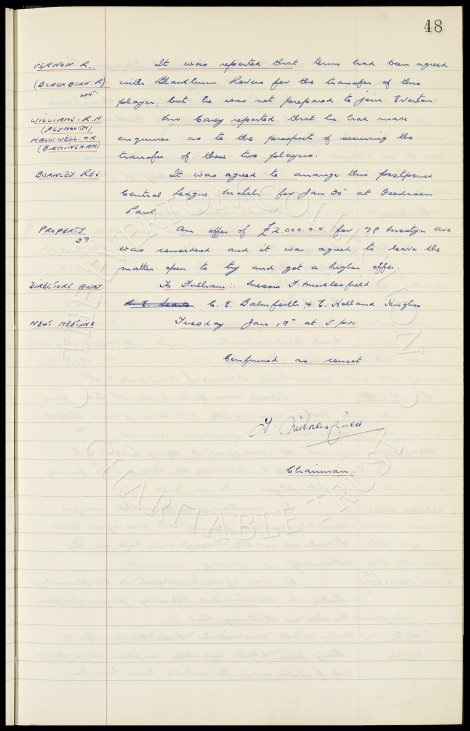 48
VERNON R. It was reported that terms had been agreed
(BLACKBURN R) with Blackburn Rovers for the transfer of this
player, but he was not prepared to join Everton.
WILLIAMS. R.H. Mr Carey reported that he had made
(PLYMOUTH)
HALLIWELL. (BIRMINGHAM) enquiries as to the prospects of securing the
transfer of these two players.
BURNLEY RES. It was agreed to arrange this postponed
Central League match for Jan 30 at Goodison
Park
PROPERTY. An offer of £2,000.0.0 for 78 Mostyn Ave
37 was considered and it was agreed to leave the
matter open to try and get a higher offer.
DIRECTORS AWAY. To Fulham: Messrs F. Micklesfield
C. E. Balmforth & E. Holland Hughes
NEXT MEETING Tuesday Jan 19th at 5 P.M.
Confirmed as correct
F Micklesfield
Chairman
THE EVERTON COLLECTION
CHARITABLE TRUST